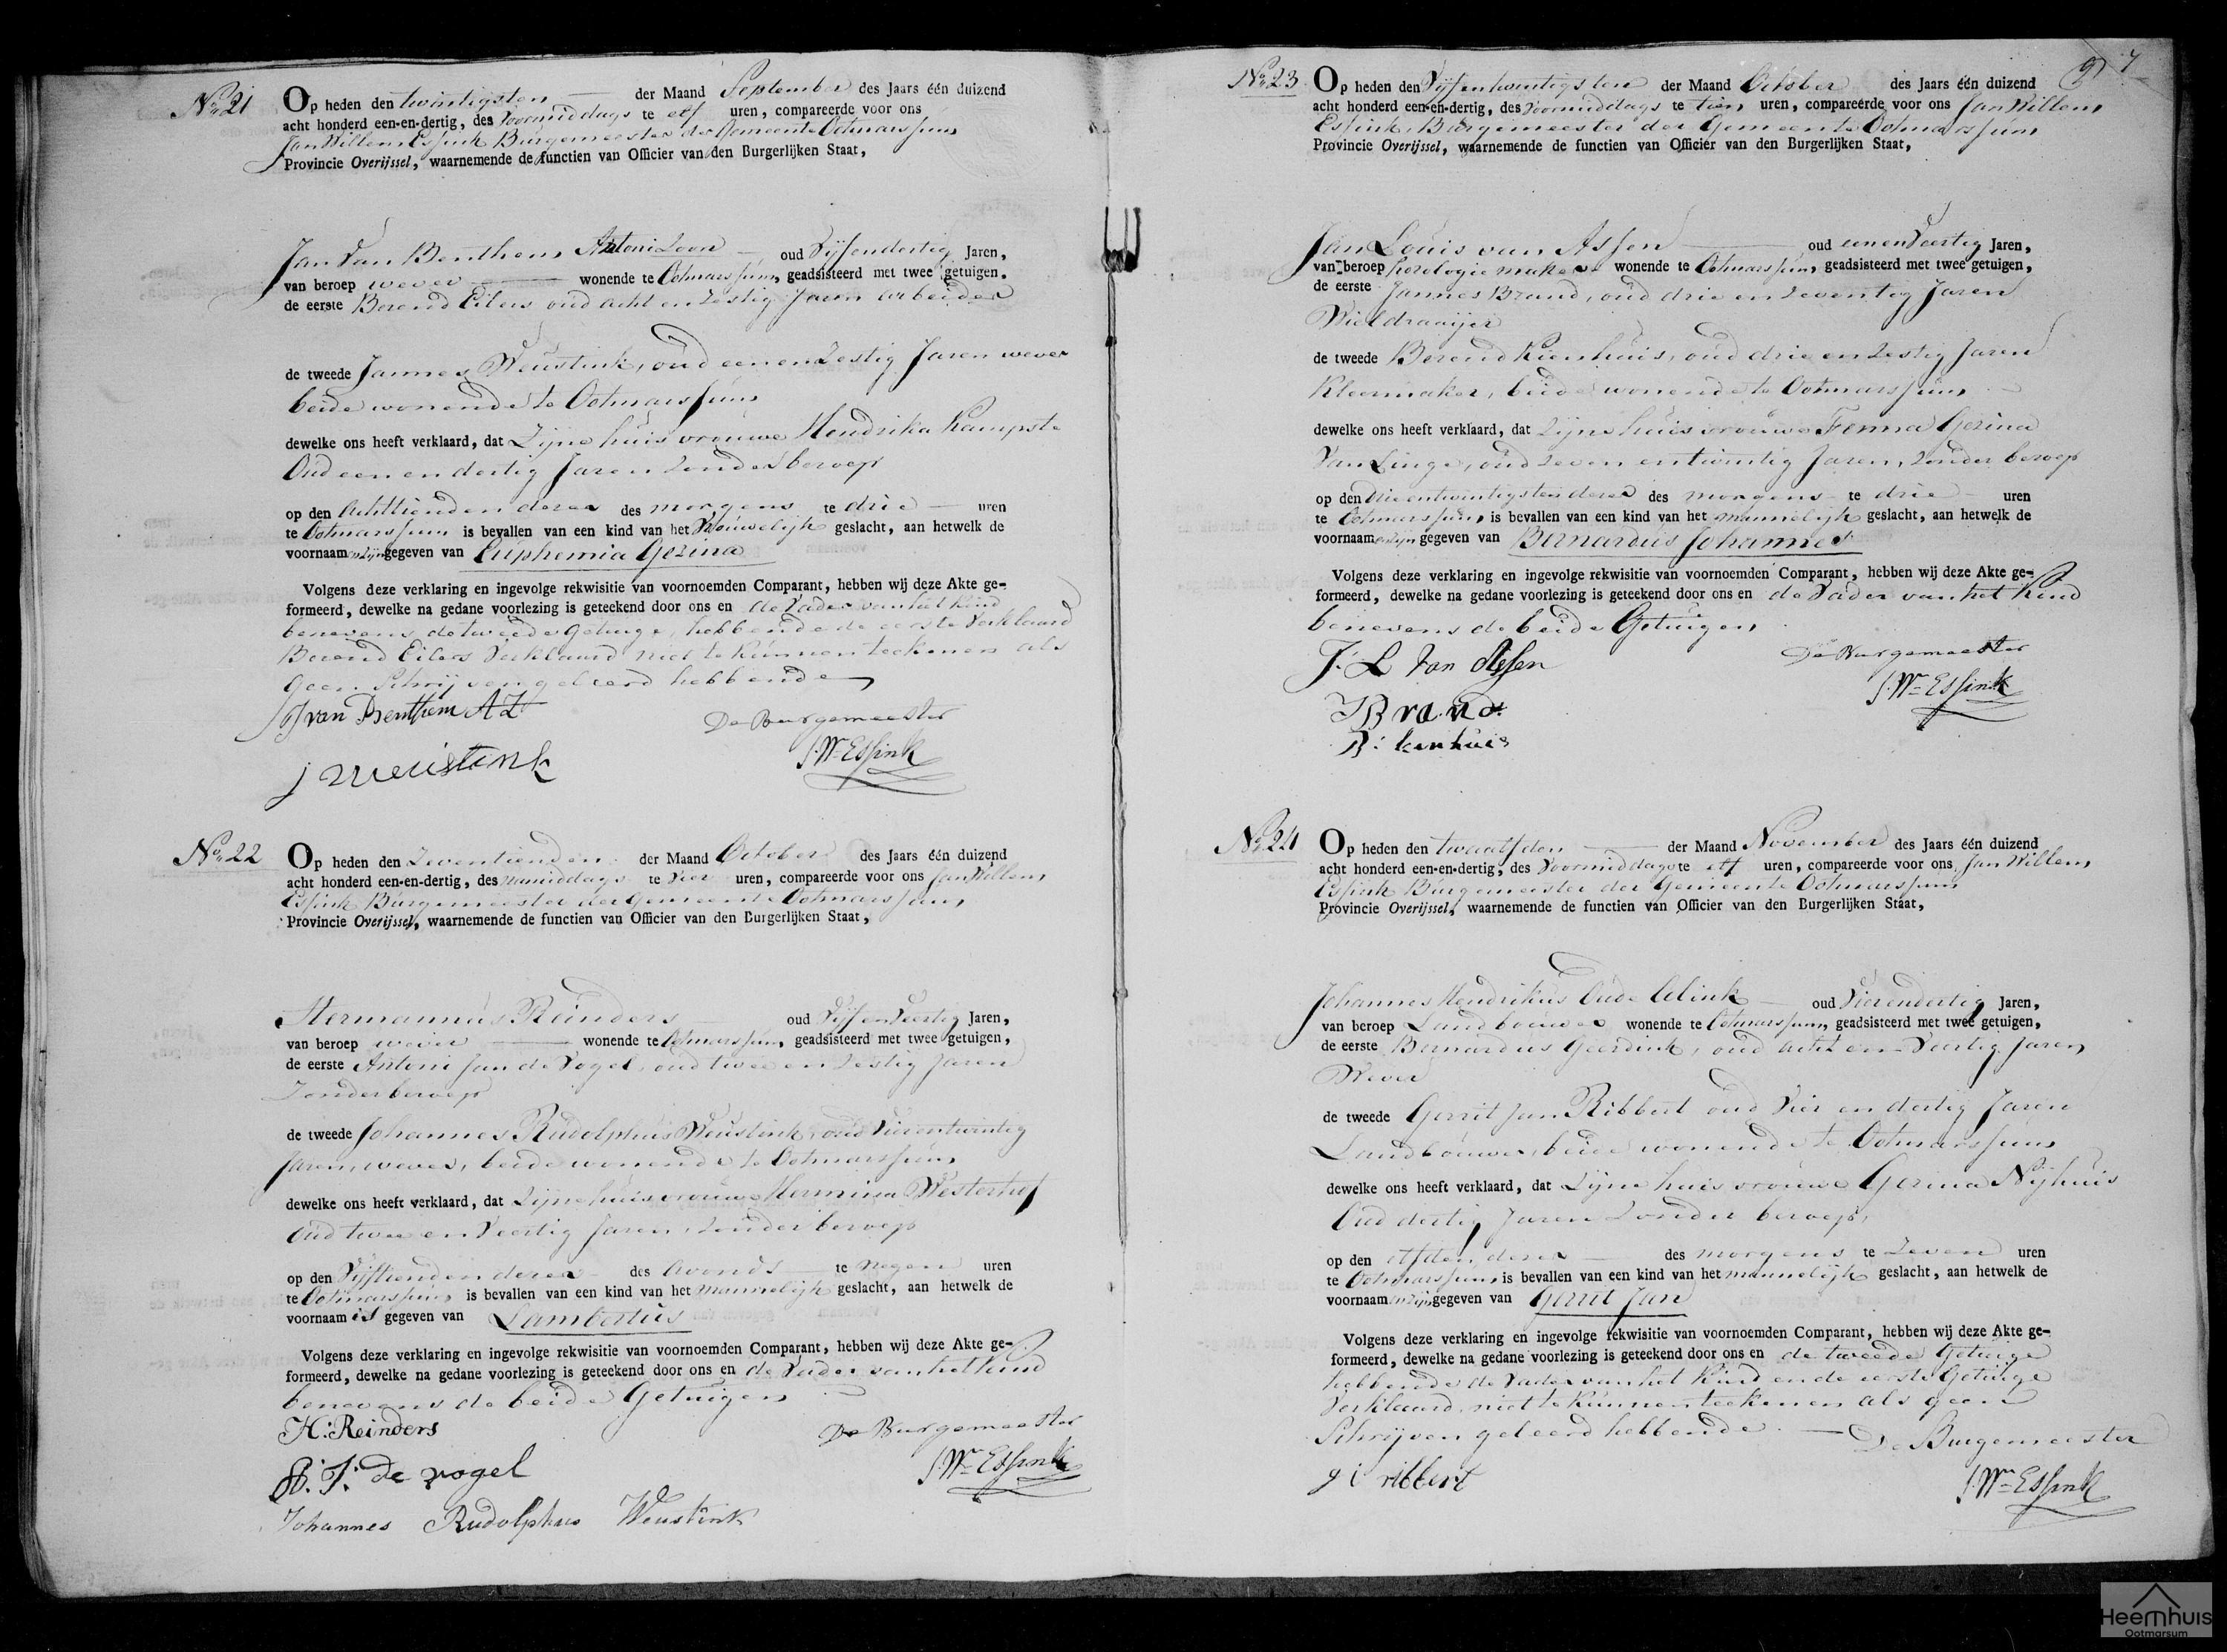 No. 21
Op heden den twintigsten der Maand September des Jaars één duizend
acht honderd een-en-dertig, des voormiddags te elf uren, compareerde voor ons
Jan Willem Essink Burgemeester der Gemeente Ootmarssum
Provincie Overijssel, waarnemende de functien van Officier van den Burgerlijken Staat,
Jan Van Benthem Antoni Zoon oud Vijfendertig Jaren,
van beroep wever wonende te Ootmarssum, geadsisteerd met twee getuigen.
de eerste Berend Eilers oud acht en Zestig Jaren arbeider
de tweede Jannes Weustink, oud een en Zestig Jaren wever
beide wonende te Ootmarssum
dewelke ons heeft verklaard, dat Zijne huisvrouwe Hendrika Kampste
Oud een en dertig Jaren Zonder beroep
op den Achttienden dezer des morgens te drie uren
te Ootmarssum is bevallen van een kind van het Vrouwelijk geslacht, aan hetwelk de
voornaamen zijn gegeven van Euphemia Gezina
Volgens deze verklaring en ingevolge rekwisitie van voornoemden Comparant, hebben wij deze Akte ge-
formeerd, dewelke na gedane voorlezing is geteekend door ons en de Vader van het kind
benevens de tweede Getuige, hebbende de eerste Verklaard
Berend Eilers Verklaard niet te kunnen teekenen als
geen Schrijven geleerd hebbende
J van Benthem AZ
De Burgemeester
J Weustink
J. Wm Essink
No. 22
Op heden den Zeventienden der Maand October des Jaars één duizend
acht honderd een-en-dertig, des namiddags te Vier uren, compareerde voor ons Jan Willem
Essink Burgemeester der Gemeente Ootmarssum
Provincie Overijssel, waarnemende de functien van Officier van den Burgerlijken Staat,
Hermannus Reinders oud Vijf en Veertig Jaren,
van beroep wever wonende te Ootmarssum, geadsisteerd met twee getuigen,
de eerste Antoni Jan de Vogel, oud twee en Zestig Jaren
Zonder beroep
de tweede Johannes Rudolphus Weustink, oud Vierentwintig
Jaren, wever, beide wonende te Ootmarssum
dewelke ons heeft verklaard, dat Zijne huisvrouwe Hermina Westerhof
Oud twee en Veertig Jaren, Zonder beroep
op den Vijftienden dezer des Avonds te Negen uren
te Ootmarssum is bevallen van een kind van het Mannelijk geslacht, aan hetwelk de
voornaam is gegeven van Lambertus
Volgens deze verklaring en ingevolge rekwisitie van voornoemden Comparant, hebben wij deze Akte ge-
formeerd, dewelke na gedane voorlezing is geteekend door ons en de Vader van het kind
benevens de beide Getuigen
H: Reinders
De Burgemeester
J. de vogel
J. Wm Essink
Johannes Rudolphus Weustink
7
No. 23
Op heden den Vijfentwintigsten der Maand October des Jaars één duizend
acht honderd een-en-dertig, des voormiddags te tien uren, compareerde voor ons Jan Willem
Essink, Burgemeester der Gemeente Ootmarssum
Provincie Overijssel, waarnemende de functien van Officier van den Burgerlijken Staat,
Jan Louis van Assen oud eenenVeertig Jaren,
van beroep horologiemaker wonende te Ootmarssum, geadsisteerd met twee getuigen,
de eerste Jannes Brand, oud drie en Zeventig Jaren
Wieldraaijer
de tweede Berend Kienhuis, oud drie en Zestig Jaren
Kleermaker, beide wonende te Ootmarssum
dewelke ons heeft verklaard, dat Zijne huisvrouwe Fenna Gezina
Van Linge, oud Zeven en twintig Jaren, Zonder beroep
op den Drieentwintigsten dezer des morgens te drie uren
te Ootmarssum, is bevallen van een kind van het mannelijk geslacht, aan hetwelk de
voornaamen zijn gegeven van Bernardus Johannes
Volgens deze verklaring en ingevolge rekwisitie van voornoemden Comparant, hebben wij deze Akte ge-
formeerd, dewelke na gedane voorlezing is geteekend door ons en de Vader van het Kind
benevens de beide Getuigen
J. L van Assen
De Burgemeester
J. Wm Essink
J Brand
B: kenhuis
No. 24
Op heden den twaalfden der Maand November des Jaars één duizend
acht honderd een-en-dertig, des Voormiddags te elf uren, compareerde voor ons, Jan Willem
Essink Burgemeester der Gemeente Ootmarssum
Provincie Overijssel, waarnemende de functien van Officier van den Burgerlijken Staat,
Johannes Hendrikus Oude Elink oud Vierendertig Jaren,
van beroep Landbouwer wonende te Ootmarssum, geadsisteerd met twee getuigen,
de eerste Bernardus Geerdink, oud acht en Veertig Jaren
Wever
de tweede Gerrit Jan Ribbert oud Vier en dertig Jaren
Landbouwer, beide wonende te Ootmarssum
dewelke ons heeft verklaard, dat Zijne huisvrouwe Gezina Nijhuis
Oud dertig Jaren Zonder beroep,
op den elfden dezer des morgens te Zeven uren
te Ootmarssum, is bevallen van een kind van het mannelijk geslacht, aan hetwelk de
voornaamen zijn gegeven van Gerrit Jan
Volgens deze verklaring en ingevolge rekwisitie van voornoemden Comparant, hebben wij deze Akte ge-
formeerd, dewelke na gedane voorlezing is geteekend door ons en de tweede Getuige
hebbende de Vader van het Kind en de eerste Getuige
Verklaard, niet te kunnen teekenen als geen
Schrijven geleerd hebbende.
De Burgemeester
g j ribbert
J. Wm Essink
Heemhuis
Ootmarsum